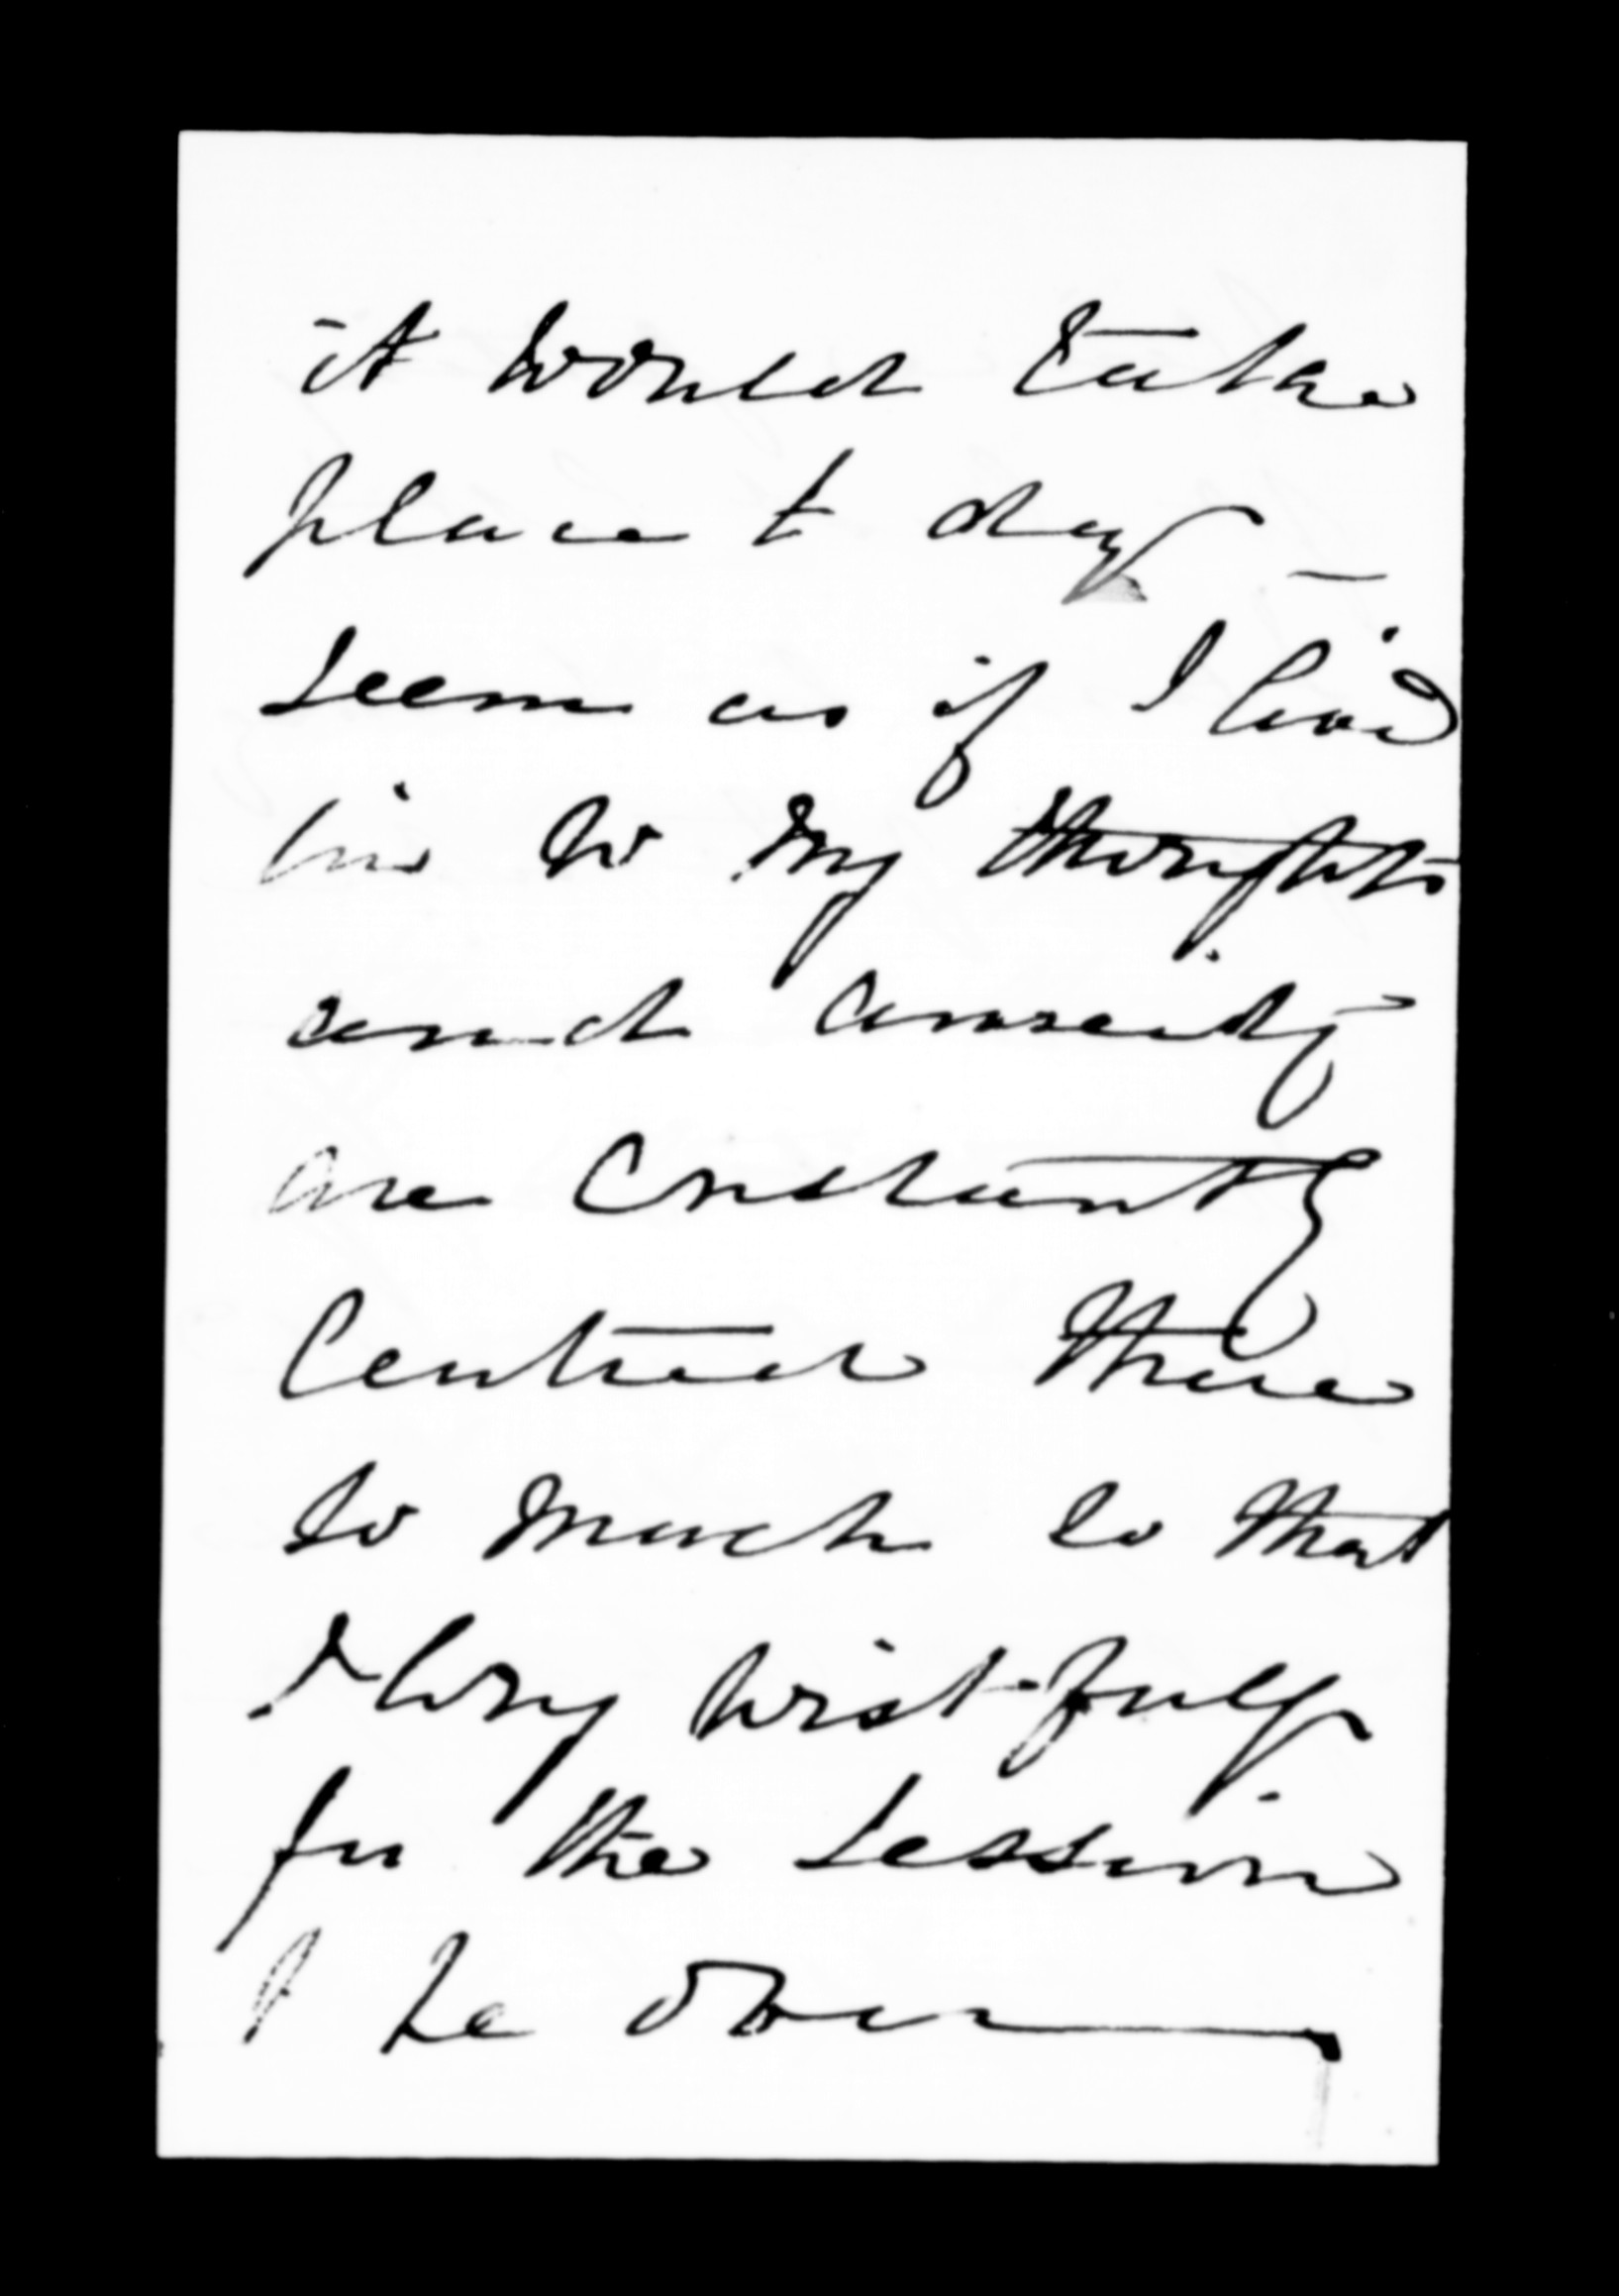 it would take
place to day —
seem as if I live
in W my thoughts
and anxiety
are Constantly
Centred there
so much so that
I long wist-fully
for the Session
to be over —